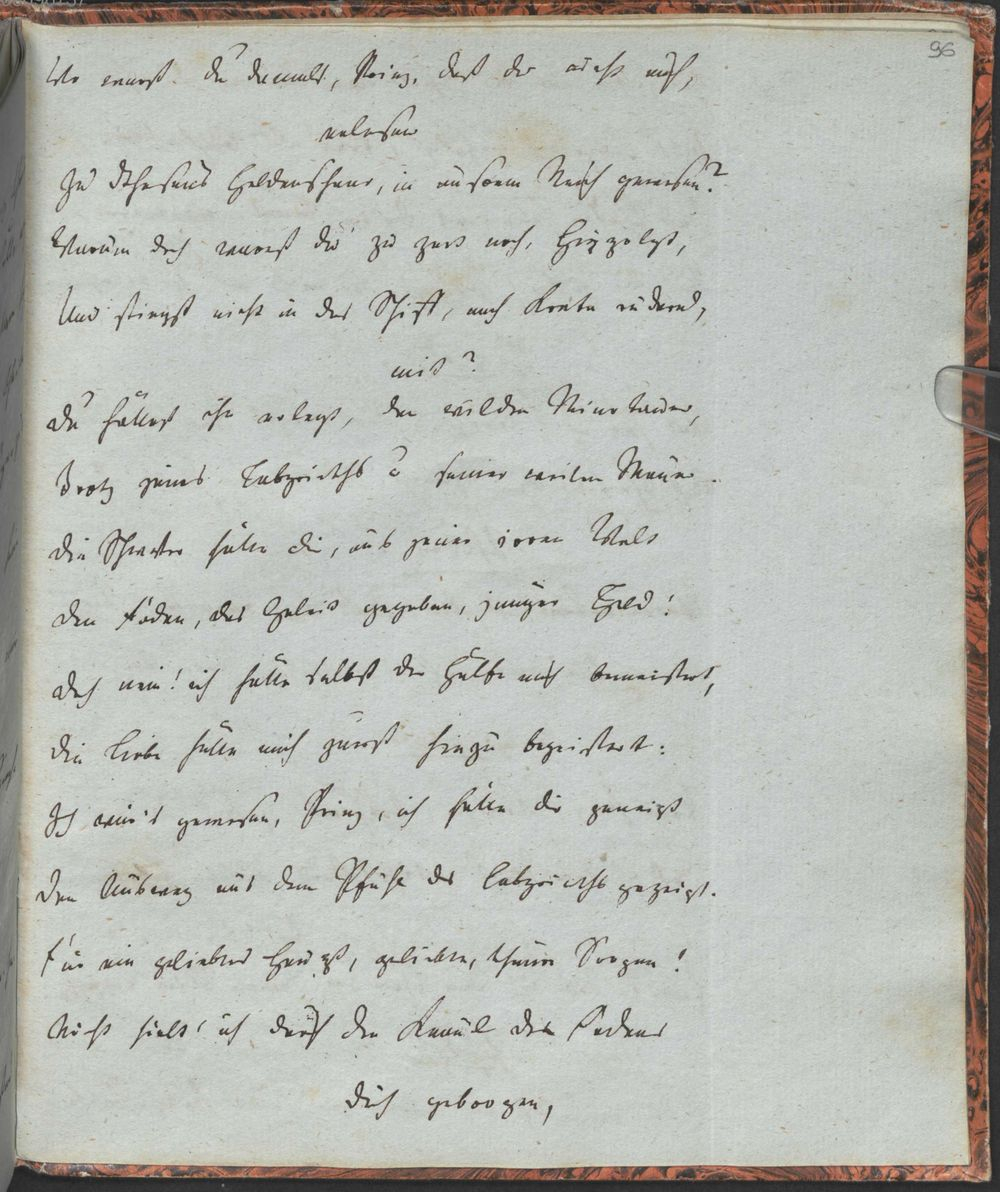 96
Wo warst du damals, Prinz, daß du nicht auch,
erlesen
Zu Theseus Heldenschaar, in unserm Reich gewesen?
Warum doch warest du zu zart noch, Hippolyt,
Und stiegst nicht in das Schiff, nach Kreta rudernd,
mit?
Du hättest ihn erlegt, den wilden Minotauer,
Trotz jenes Labyrinths u seiner weiten Mauer.
Die Schwester hätte dir, aus jener irren Welt
Den Faden, das Geleit gegeben, junger Held!
Doch nein! ich hätte selbst der Hülfe mich bemeistert,
Die Liebe hätte mich zuerst hiezu begeistert:
Ich wär's gewesen, Prinz, ich hätte dir geneigt
Den Ausweg aus dem Pfuhl des Labyrinths gezeigt.
Für ein geliebtes Haupt, geliebte, theure Sorgen!
Nicht hielt' ich durch den Knäul des Fadens
dich geborgen,